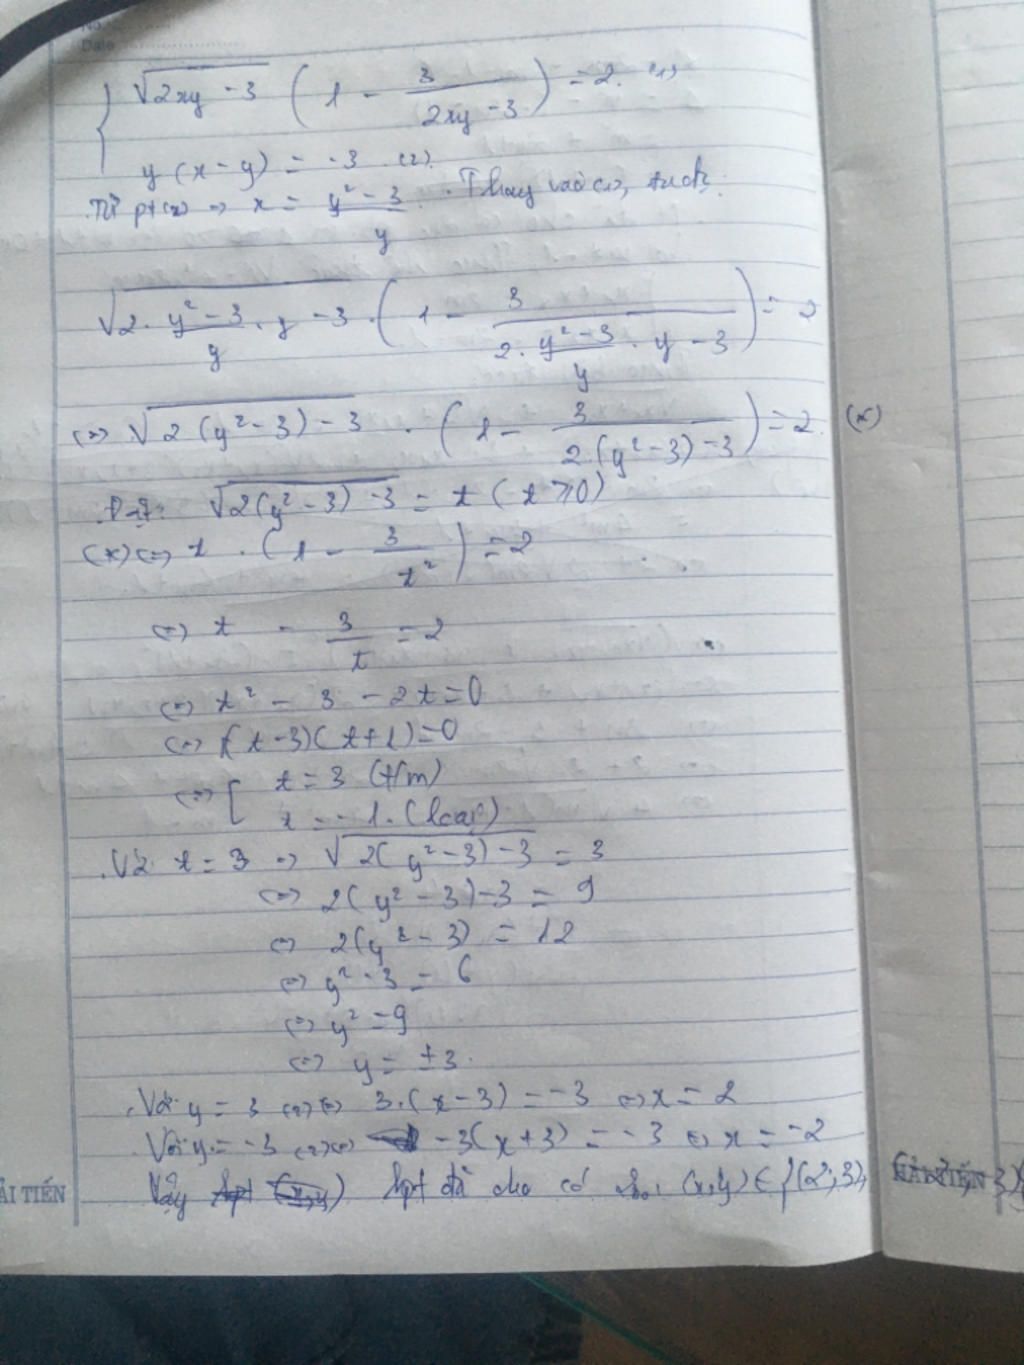 No.
Date
{ √(2xy - 3) (1 - 3/(2xy - 3)) = 2. (1)
y (x - y) = -3 (2).
Từ pt(2) => x = (y² - 3)/y. Thay vào (1), ta đc:
√(2 . (y² - 3)/y . y - 3) . (1 - 3/(2 . (y² - 3)/y . y - 3)) = 2
<=> √(2 (y² - 3) - 3) . (1 - 3/(2.(y² - 3) - 3)) = 2. (*)
Đặt: √(2(y² - 3) - 3) = t (t ≥ 0)
(*) <=> t . (1 - 3/t²) = 2
<=> t - 3/t = 2
<=> t² - 3 - 2t = 0
<=> (t - 3)(t + 1) = 0
<=> [ t = 3 (t/m)
t = -1. (loại)
Với t = 3 => √(2(y² - 3) - 3) = 3
<=> 2(y² - 3) - 3 = 9
<=> 2(y² - 3) = 12
<=> y² - 3 = 6
<=> y² = 9
<=> y = ±3.
Với y = 3 (2) <=> 3.(x - 3) = -3 <=> x = 2
Với y = -3 (2) <=> -3(x + 3) = -3 <=> x = -2
Vậy hpt đã cho có (x,y) ∈ {(2; 3),
ẢI TIẾN